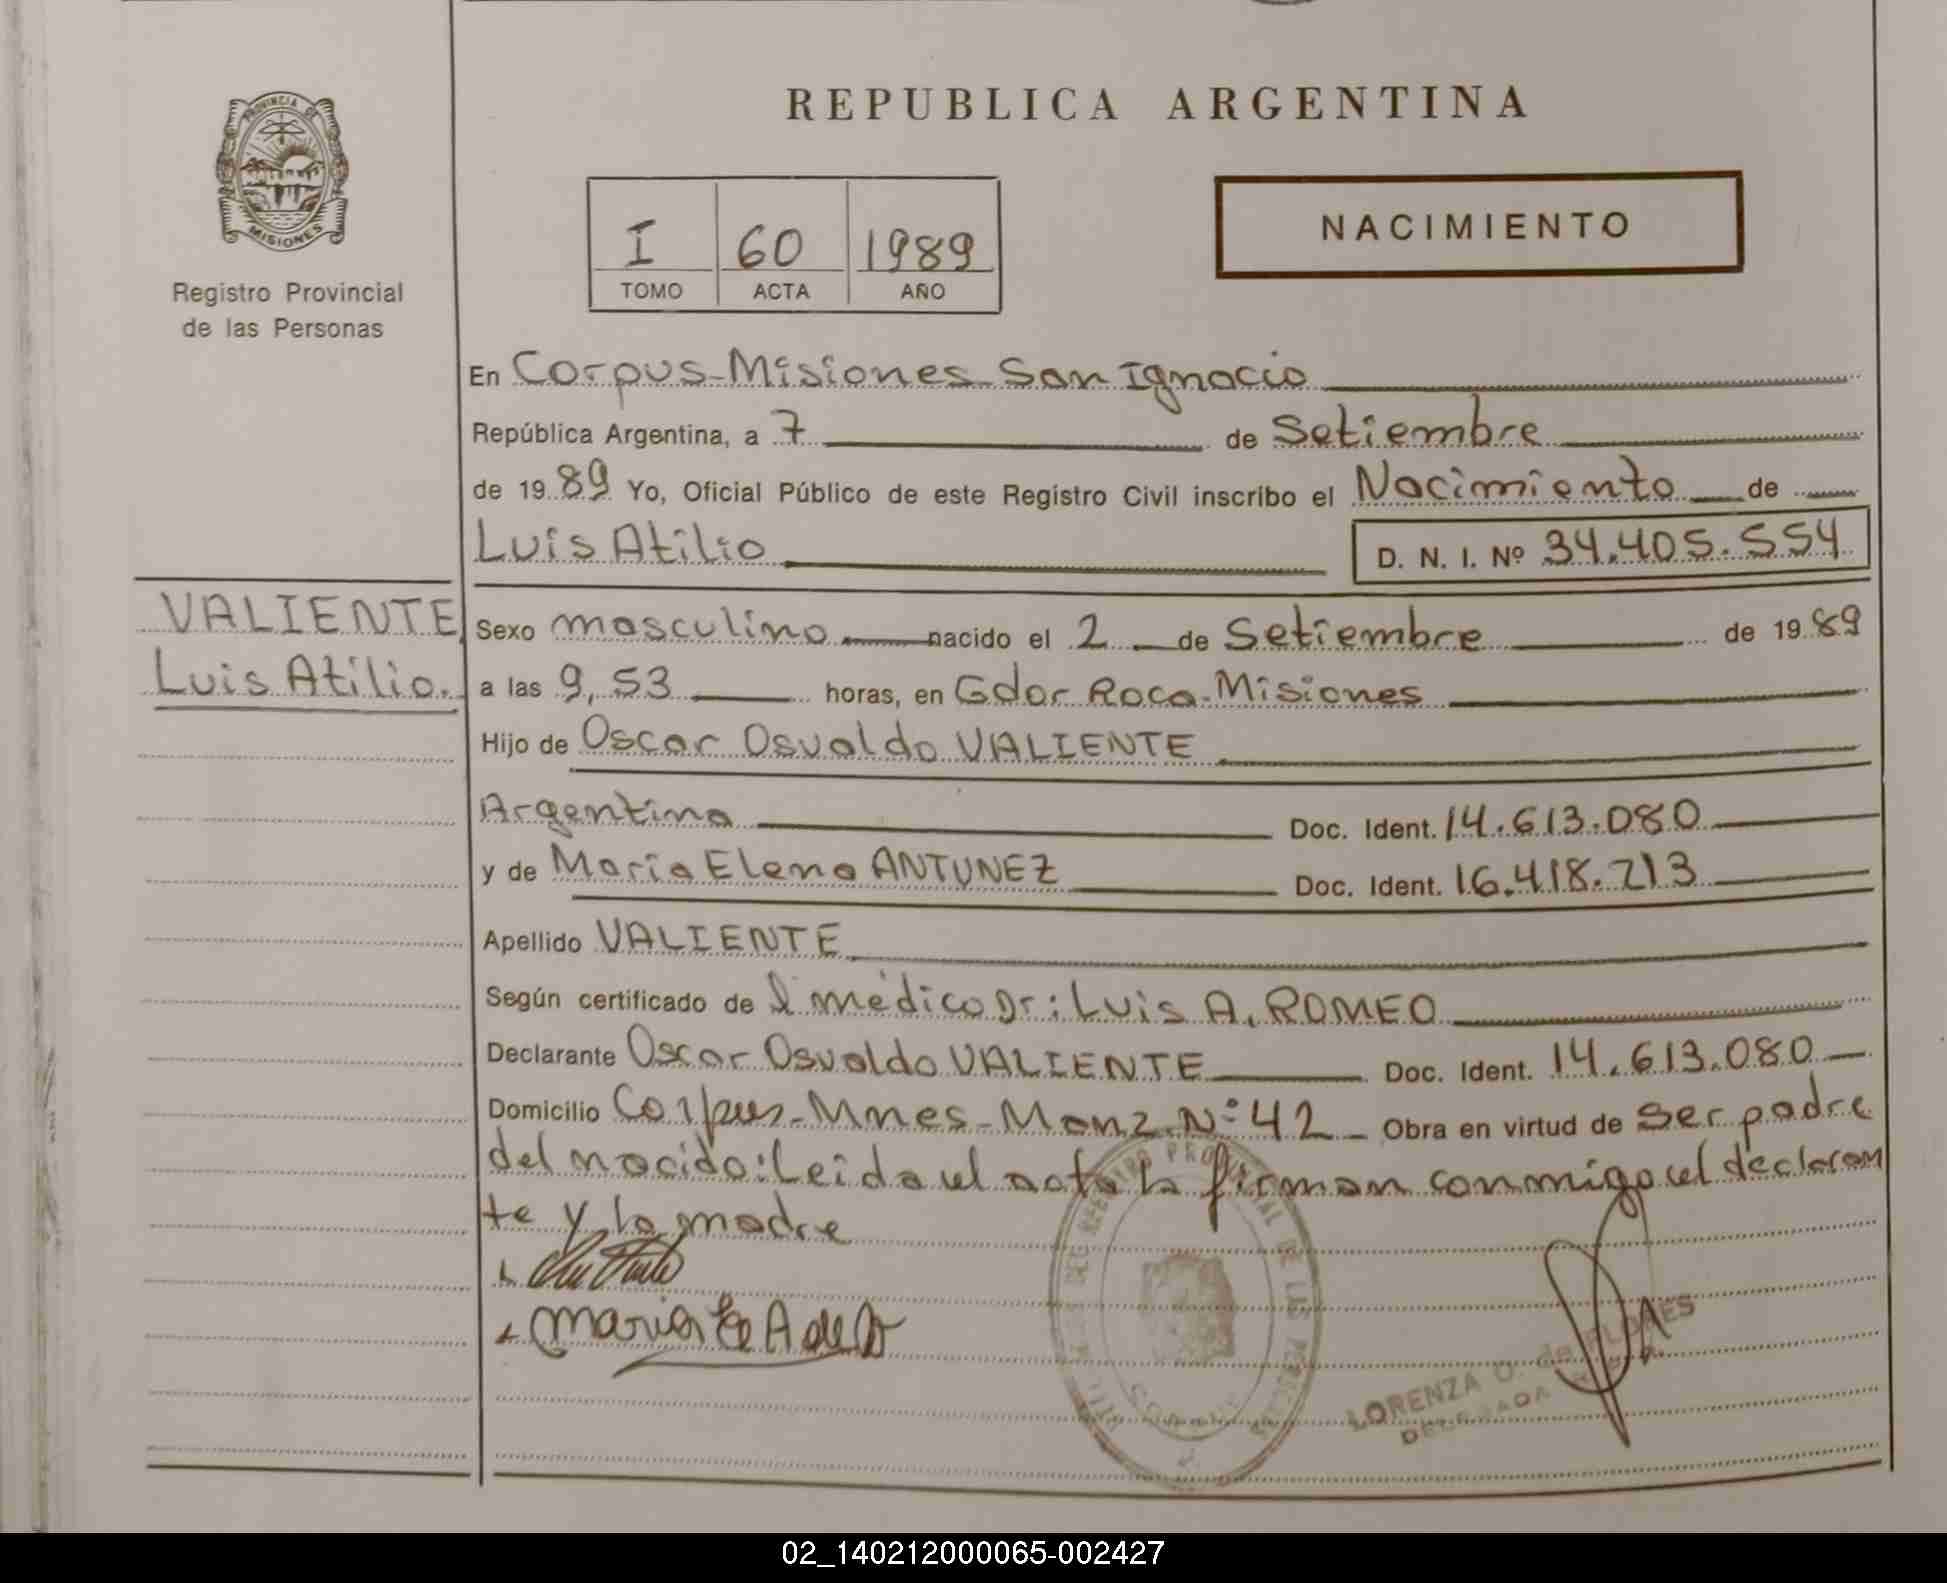 REPUBLICA ARGENTINA
PROVINCIA DE
MISIONES
Registro Provincial
de las Personas
I 60 1989
TOMO ACTA AÑO
NACIMIENTO
En Corpus-Misiones-San Ignacio
República Argentina, a 7 de Setiembre
de 1989 Yo, Oficial Público de este Registro Civil inscribo el Nacimiento de
Luis Atilio
D. N. I. Nº 34.405.554
VALIENTE,
Luis Atilio.
Sexo masculino nacido el 2 de Setiembre de 1989
a las 9,53 horas, en Gdor Roca-Misiones
Hijo de Oscar Osvaldo VALIENTE
Argentina Doc. Ident. 14.613.080
y de María Elena ANTUNEZ Doc. Ident. 16.418.713
Apellido VALIENTE
Según certificado de l médico Dr: Luis A. ROMEO
Declarante Oscar Osvaldo VALIENTE Doc. Ident. 14.613.080
Domicilio Corpus-Mnes-Manz.Nº42 Obra en virtud de ser padre
del nacido: Leida el acta la firman conmigo el declaran
te y la madre
Maria E A de
REGISTRO PROVINCIAL DE LAS PERSONAS
LORENZA O. de FLORES
DELEGADA
02_140212000065-002427